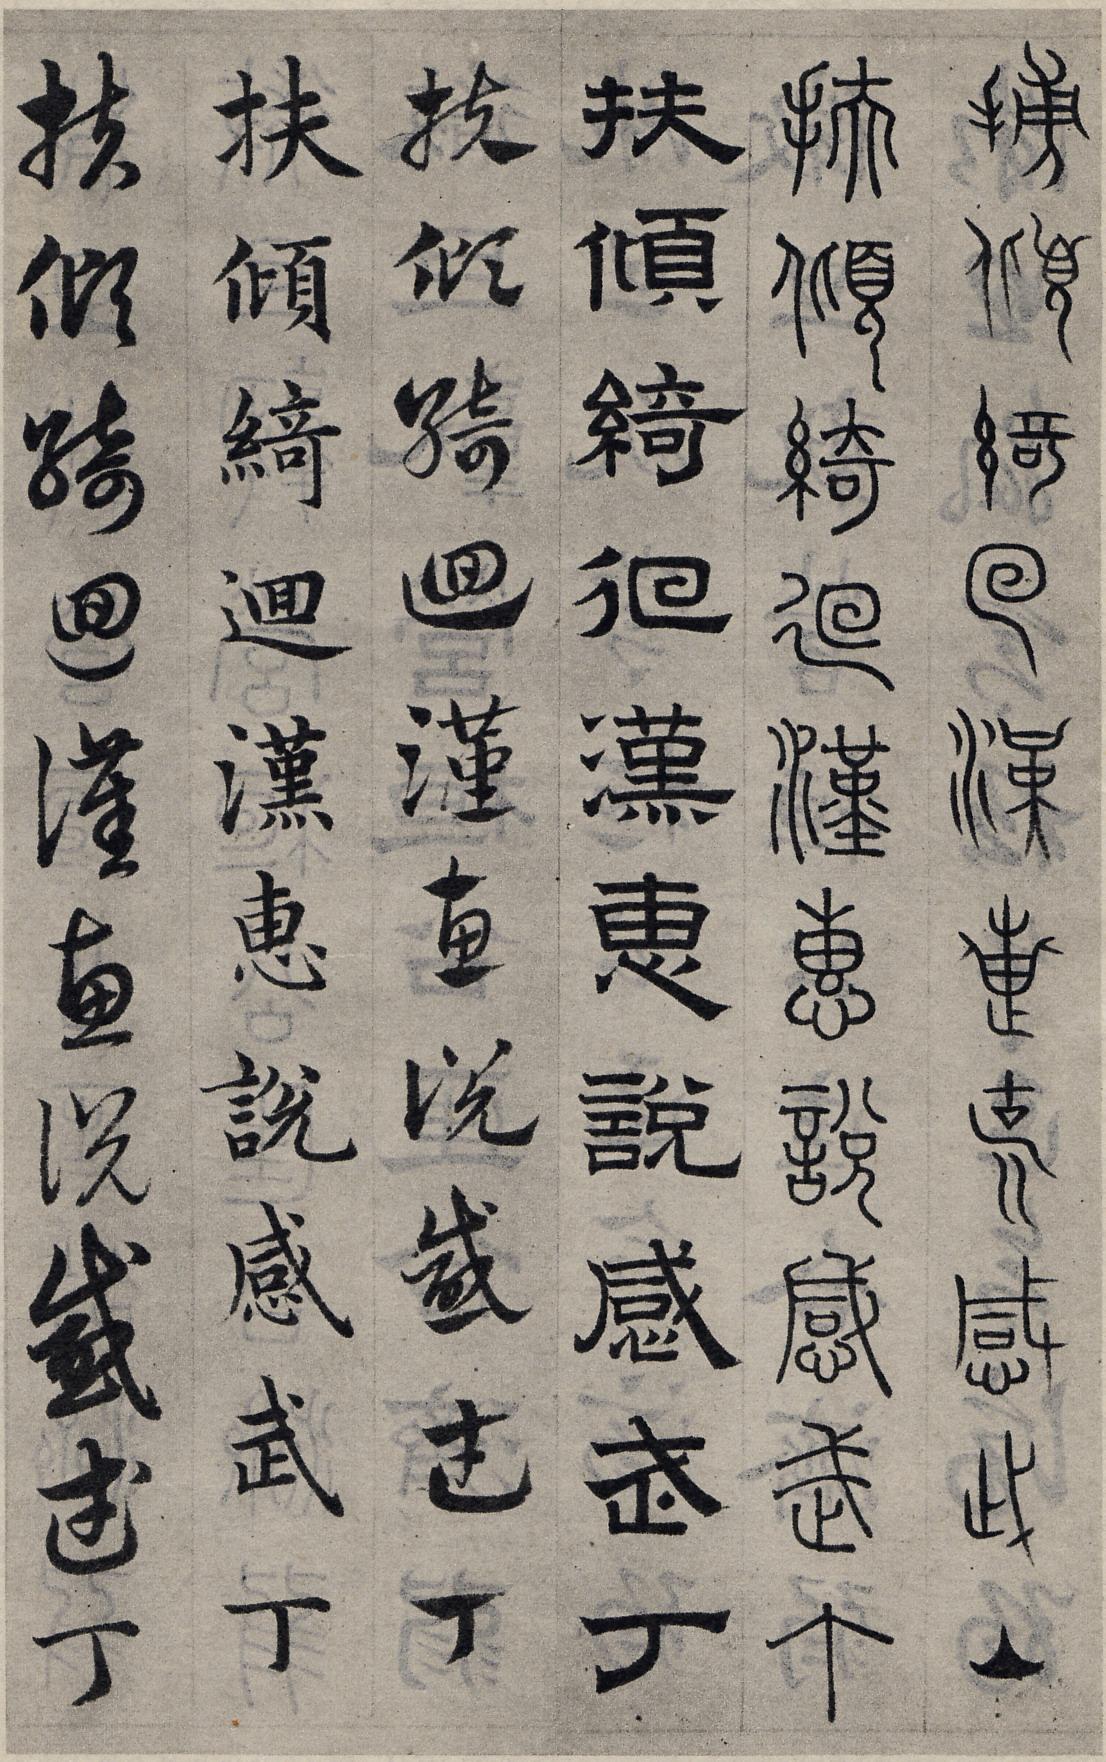 扶傾綺迴漢惠說感武丁
扶傾綺迴漢惠說感武丁
扶傾綺佪漢惠說感武丁
扶傾綺迴漢惠說感武丁
扶傾綺迴漢惠說感武丁
扶傾綺迴漢惠說感武丁